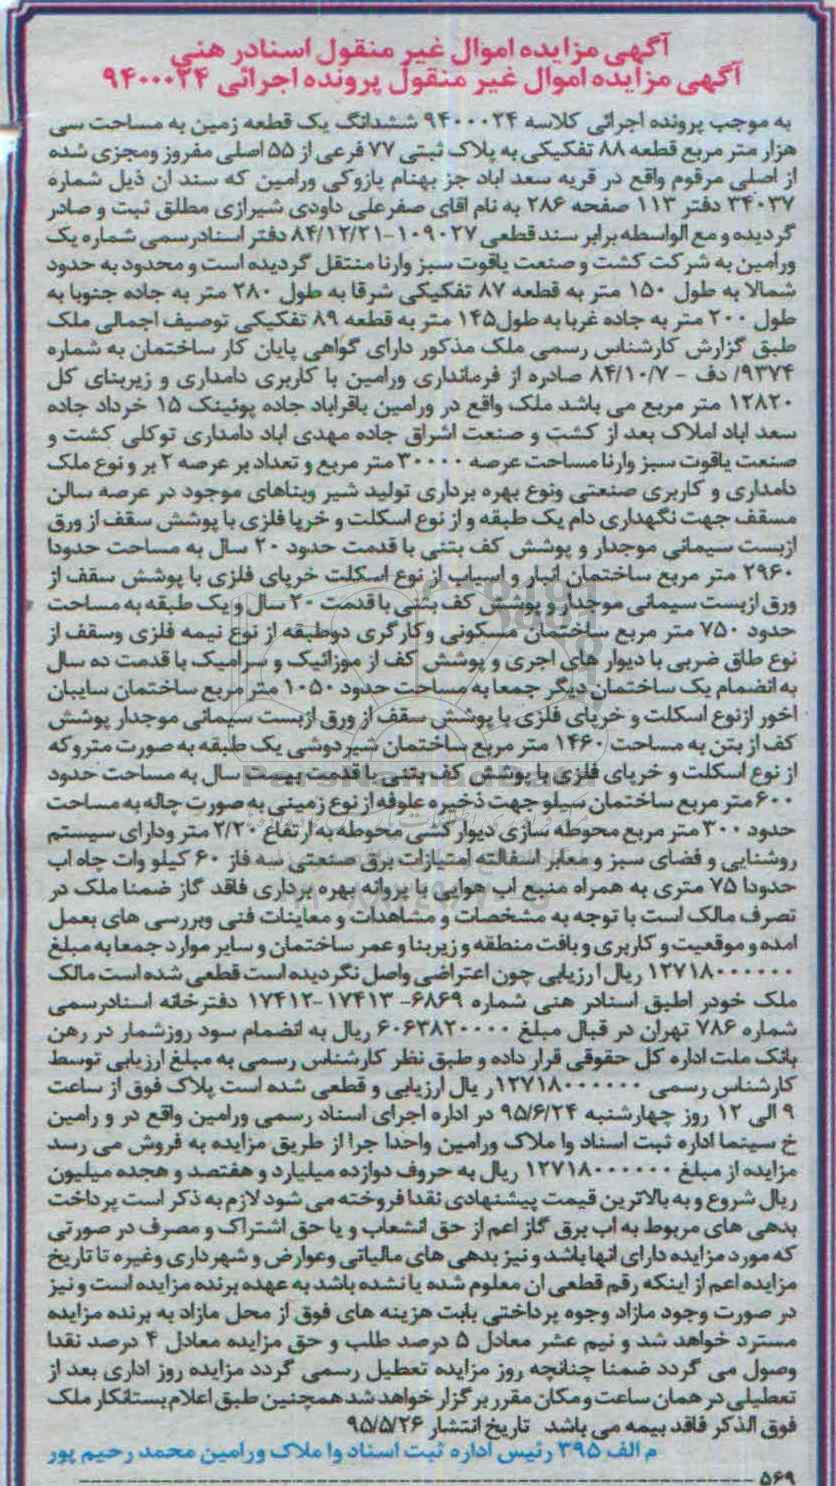 آگهی مزایده اموال غیر منقول اسنادر هنی
آگهی مزایده اموال غیر منقول پرونده اجرائی ۹۴۰۰۰۲۴
به موجب پرونده اجرائی کلاسه ۹۴۰۰۰۲۴ ششدانگ یک قطعه زمین به مساحت سی
هزار متر مربع قطعه ۸۸ تفکیکی به پلاک ثبتی ۷۷ فرعی از ۵۵ اصلی مفروز ومجزی شده
از اصلی مرقوم واقع در قریه سعد اباد جز بهنام پازوکی ورامین که سند ان ذیل شماره
۳۴۰۳۷ دفتر ۱۱۳ صفحه ۲۸۶ به نام اقای صفرعلی داودی شیرازی مطلق ثبت و صادر
گردیده و مع الواسطه برابر سند قطعی ۱۰۹۰۲۷-۸۴/۱۲/۲۱ دفتر اسنادرسمی شماره یک
ورامین به شرکت کشت و صنعت یاقوت سبز وارنا منتقل گردیده است و محدود به حدود
شمالا به طول ۱۵۰ متر به قطعه ۸۷ تفکیکی شرقا به طول ۲۸۰ متر به جاده جنوبا به
طول ۲۰۰ متر به جاده غربا به طول۱۴۵ متر به قطعه ۸۹ تفکیکی توصیف اجمالی ملک
طبق گزارش کارشناس رسمی ملک مذکور دارای گواهی پایان کار ساختمان به شماره
۹۳۷۴/ دف - ۸۴/۱۰/۷ صادره از فرمانداری ورامین با کاربری دامداری و زیربنای کل
۱۲۸۲۰ متر مربع می باشد ملک واقع در ورامین باقراباد جاده پوئینک ۱۵ خرداد جاده
سعد اباد املاک بعد از کشت و صنعت اشراق جاده مهدی اباد دامداری توکلی کشت و
صنعت یاقوت سبز وارنا مساحت عرصه ۳۰۰۰۰ متر مربع و تعداد بر عرصه ۲ بر و نوع ملک
دامداری و کاربری صنعتی ونوع بهره برداری تولید شیر وبناهای موجود در عرصه سالن
مسقف جهت نگهداری دام یک طبقه و از نوع اسکلت و خرپا فلزی با پوشش سقف از ورق
ازبست سیمانی موجدار و پوشش کف بتنی با قدمت حدود ۲۰ سال به مساحت حدودا
۲۹۶۰ متر مربع ساختمان انبار و اسیاب از نوع اسکلت خرپای فلزی با پوشش سقف از
ورق ازبست سیمانی موجدار و پوشش کف بتنی با قدمت ۲۰ سال و یک طبقه به مساحت
حدود ۷۵۰ متر مربع ساختمان مسکونی وکارگری دوطبقه از نوع نیمه فلزی وسقف از
نوع طاق ضربی با دیوار های اجری و پوشش کف از موزائیک و سرامیک با قدمت ده سال
به انضمام یک ساختمان دیگر جمعا به مساحت حدود ۱۰۵۰ متر مربع ساختمان سایبان
اخور ازنوع اسکلت و خرپای فلزی با پوشش سقف از ورق ازبست سیمانی موجدار پوشش
کف از بتن به مساحت ۱۴۶۰ متر مربع ساختمان شیردوشی یک طبقه به صورت متروکه
از نوع اسکلت و خرپای فلزی با پوشش کف بتنی با قدمت بیست سال به مساحت حدود
۶۰۰ متر مربع ساختمان سیلو جهت ذخیره علوفه از نوع زمینی به صورت چاله به مساحت
حدود ۳۰۰ متر مربع محوطه سازی دیوار کشی محوطه به ارتفاع ۲/۲۰ متر ودارای سیستم
روشنایی و فضای سبز و معابر اسفالته امتیازات برق صنعتی سه فاز ۶۰ کیلو وات چاه اب
حدودا ۷۵ متری به همراه منبع اب هوایی با پروانه بهره برداری فاقد گاز ضمنا ملک در
تصرف مالک است با توجه به مشخصات و مشاهدات و معاینات فنی وبررسی های بعمل
امده و موقعیت و کاربری و بافت منطقه و زیربنا و عمر ساختمان و سایر موارد جمعا به مبلغ
۱۲۷۱۸۰۰۰۰۰۰ ریال ارزیابی چون اعتراضی واصل نگردیده است قطعی شده است مالک
ملک خودر اطبق اسنادر هنی شماره ۶۸۶۹- ۱۷۴۱۳-۱۷۴۱۲ دفترخانه اسنادرسمی
شماره ۷۸۶ تهران در قبال مبلغ ۶۰۶۳۸۲۰۰۰۰ ریال به انضمام سود روزشمار در رهن
بانک ملت اداره کل حقوقی قرار داده و طبق نظر کارشناس رسمی به مبلغ ارزیابی توسط
کارشناس رسمی ۱۲۷۱۸۰۰۰۰۰۰ر یال ارزیابی و قطعی شده است پلاک فوق از ساعت
۹ الی ۱۲ روز چهارشنبه ۹۵/۶/۲۴ در اداره اجرای اسناد رسمی ورامین واقع در و رامین
خ سینما اداره ثبت اسناد وا ملاک ورامین واحدا جرا از طریق مزایده به فروش می رسد
مزایده از مبلغ ۱۲۷۱۸۰۰۰۰۰۰ ریال به حروف دوازده میلیارد و هفتصد و هجده میلیون
ریال شروع و به بالاترین قیمت پیشنهادی نقدا فروخته می شود لازم به ذکر است پرداخت
بدهی های مربوط به اب برق گاز اعم از حق انشعاب و یا حق اشتراک و مصرف در صورتی
که مورد مزایده دارای انها باشد و نیز بدهی های مالیاتی وعوارض و شهرداری وغیره تا تاریخ
مزایده اعم از اینکه رقم قطعی ان معلوم شده یا نشده باشد به عهده برنده مزایده است و نیز
در صورت وجود مازاد وجوه پرداختی بابت هزینه های فوق از محل مازاد به برنده مزایده
مسترد خواهد شد و نیم عشر معادل ۵ درصد طلب و حق مزایده معادل ۴ درصد نقدا
وصول می گردد ضمنا چنانچه روز مزایده تعطیل رسمی گردد مزایده روز اداری بعد از
تعطیلی در همان ساعت و مکان مقرر برگزار خواهد شد همچنین طبق اعلام بستانکار ملک
فوق الذکر فاقد بیمه می باشد تاریخ انتشار ۹۵/۵/۲۶
م الف ۳۹۵ رئیس اداره ثبت اسناد وا ملاک ورامین محمد رحیم پور
۵۶۹
ParsNamadData